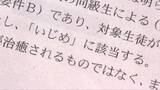 の同級生による（
要件B）であり、対象生徒が
し、「いじめ」に該当する。
治癒されるものではなく、ま